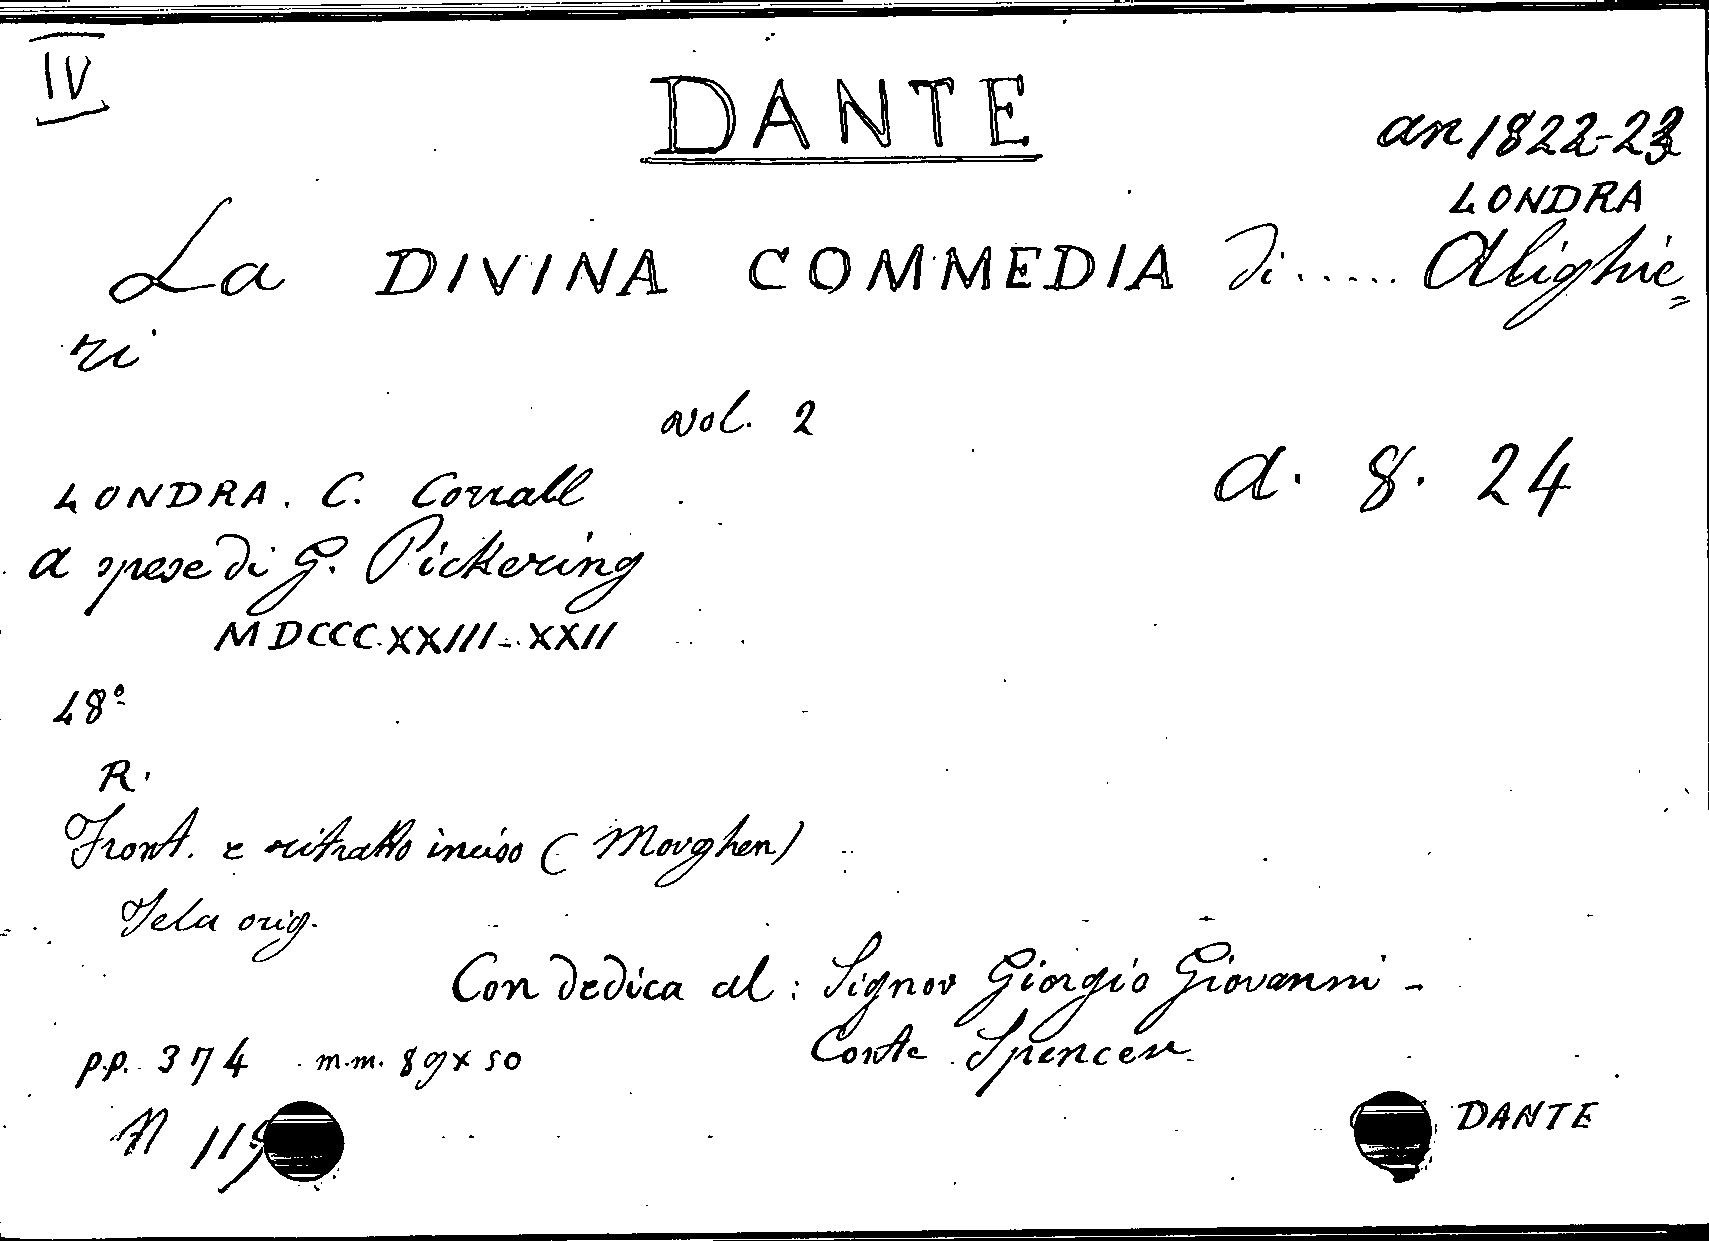 IV
DANTE
an 1822-23
LONDRA
La DIVINA COMMEDIA di ..... Alighie=
ri
vol. 2
a. 8. 24
LONDRA. C. Corrall
a spese di G. Pickering
MDCCCXXIII-XXII
48°
R.
Front. e ritratto inciso (Morghen)
Tela orig.
Con dedica al: Signor Giorgio Giovanni -
Conte Spencer
p.p. 374 m.m. 89x50
N 119
DANTE